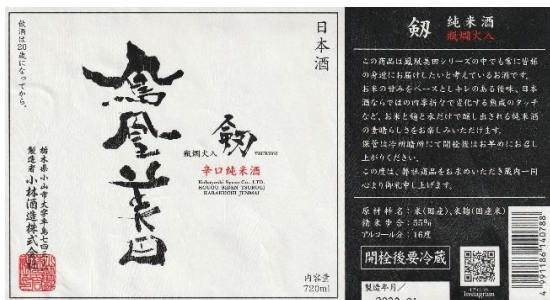 飲酒は20歳になってから。
日本酒
鳳凰美田
劔
TSURUGI
瓶燗火入
辛口純米酒
Kobayashi Syuzo Co., LTD.
HOUOU BIDEN TSURUGI
KARAKUCHI JUNMAI
栃木県小山市大字卒島七四三
製造者 小林酒造株式会社
内容量
720ml
劔 純米酒
瓶燗火入
この商品は鳳凰美田シリーズの中でも常に皆様
の身近にお届けしたいと考えているお酒です。
お米の甘みをベースとしキレのある後味、日本
酒ならではの四季折々で変化する熟成のタッチ
など、お米と麹と水だけで醸し出される純米酒
の素晴らしさをお楽しみいただけます。
保管は冷所暗所にて開栓後はお早めにお召し
上がりください。
この度は、弊社商品をお求めいただき蔵内一同
心より御礼申し上げます。
原材料名：米(国産)、米麹(国産米)
精米歩合：55%
アルコール分：16度
開栓後要冷蔵
Instagram
製造年月/
4991186140788